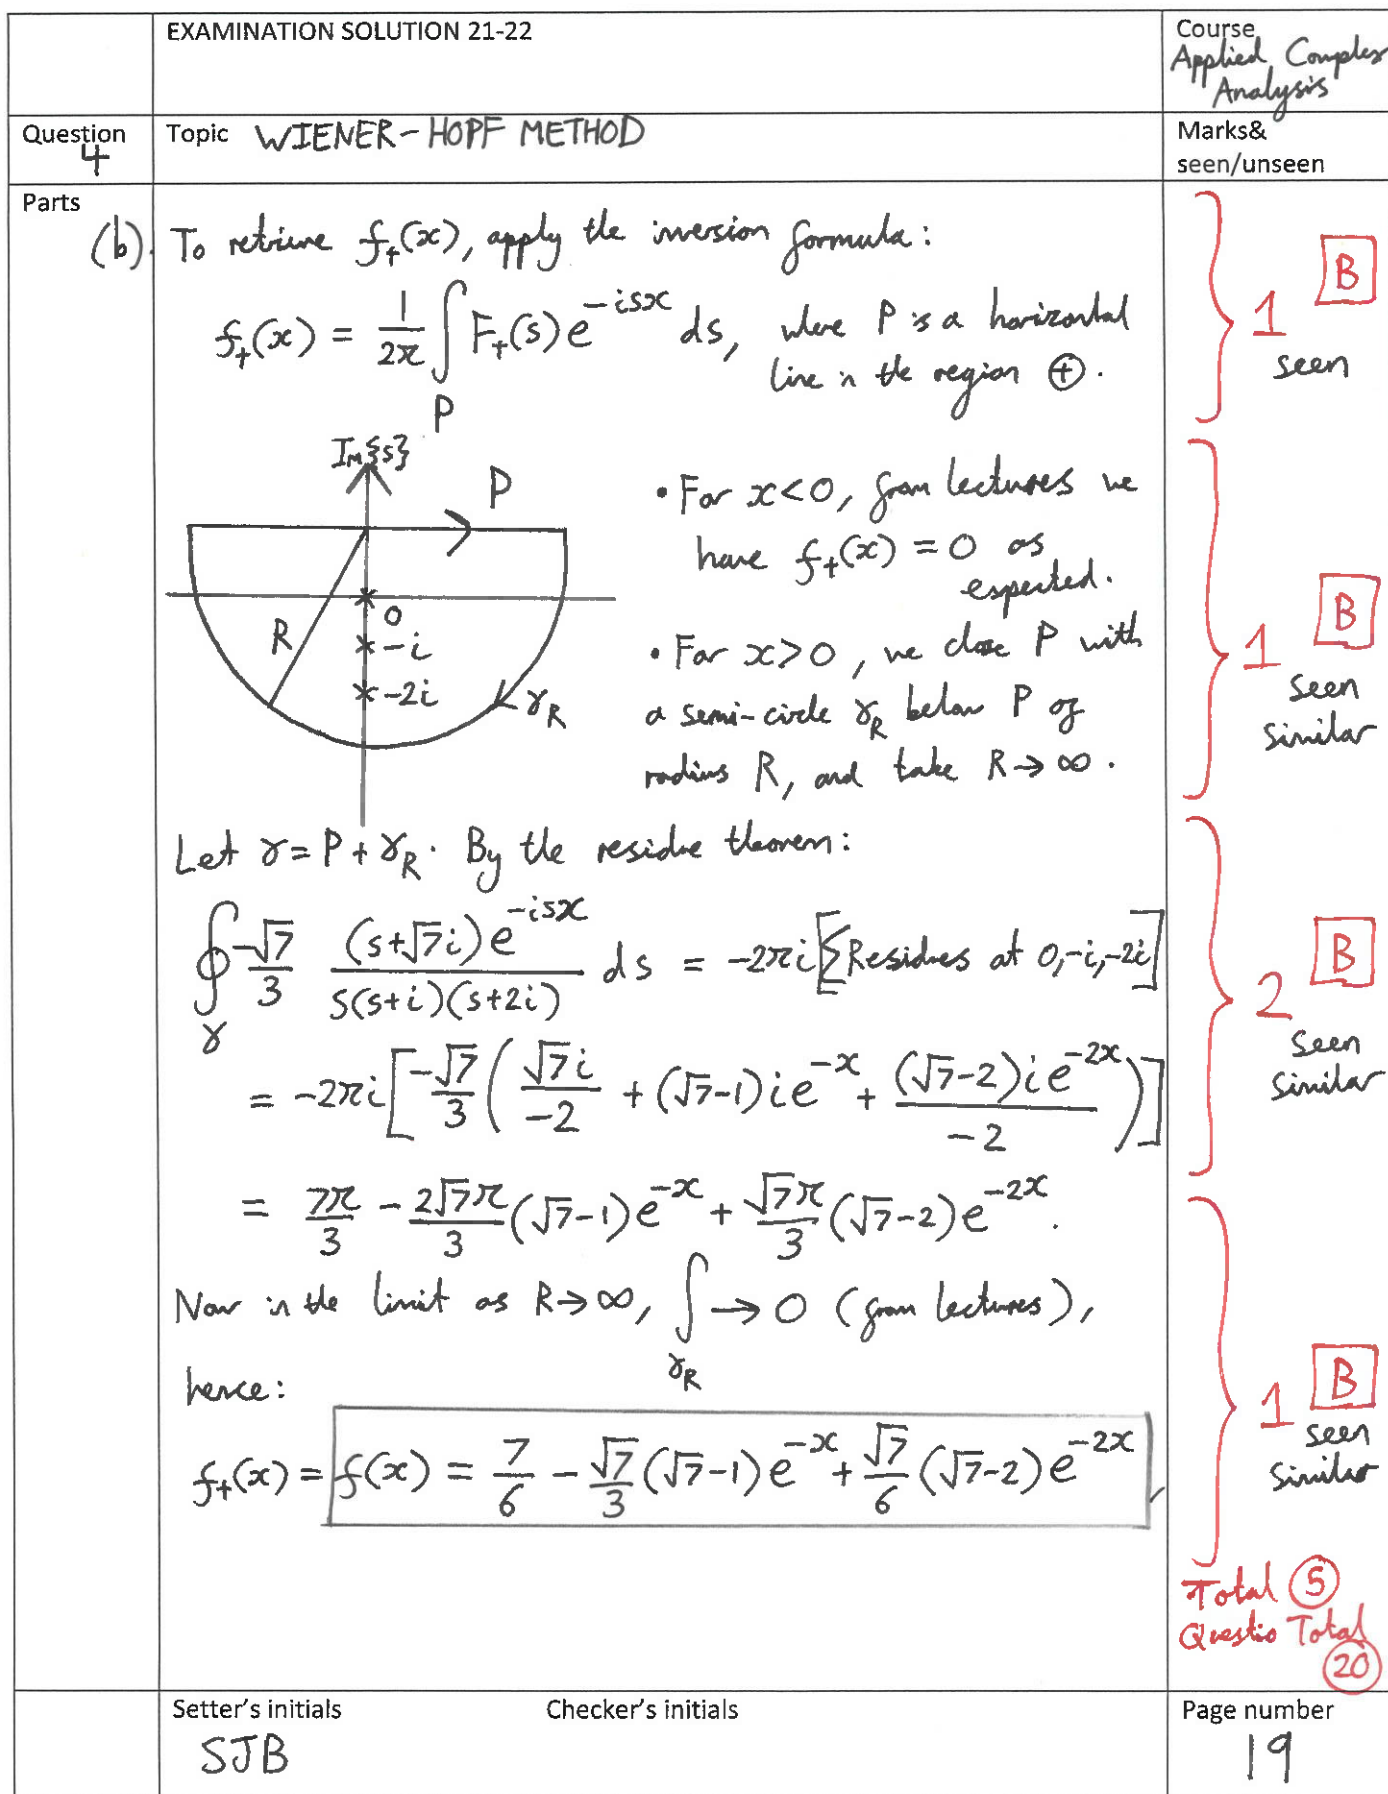 EXAMINATION SOLUTION 21-22
Course
Applied Complex
Analysis
Question
4
Topic WIENER-HOPF METHOD
Marks&
seen/unseen
Parts
(b). To retrieve f₊(x), apply the inversion formula:
f₊(x) = 1/2π ∫_P F₊(s) e^{-isx} ds, where P is a horizontal
line in the region ⊕.
1 B
seen
Im{s}
P
0
-i
-2i
R
γ_R
• For x<0, from lectures we
have f₊(x) = 0 as
expected.
• For x>0, we close P with
a semi-circle γ_R below P of
radius R, and take R→∞.
1 B
seen
similar
Let γ = P + γ_R. By the residue theorem:
∮_γ -√7/3 (s+√7i)e^{-isx} / s(s+i)(s+2i) ds = -2πi[∑Residues at 0,-i,-2i]
= -2πi[-√7/3 (√7i/-2 + (√7-1)ie^{-x} + (√7-2)ie^{-2x}/-2)]
2 B
seen
similar
= 7π/3 - 2√7π/3 (√7-1)e^{-x} + √7π/3 (√7-2)e^{-2x}.
Now in the limit as R→∞, ∫_{γ_R} → 0 (from lectures),
hence:
f₊(x) = f(x) = 7/6 - √7/3 (√7-1)e^{-x} + √7/6 (√7-2)e^{-2x},
1 B
seen
similar
Total 5
Questio Total
20
Setter's initials
SJB
Checker's initials
Page number
19